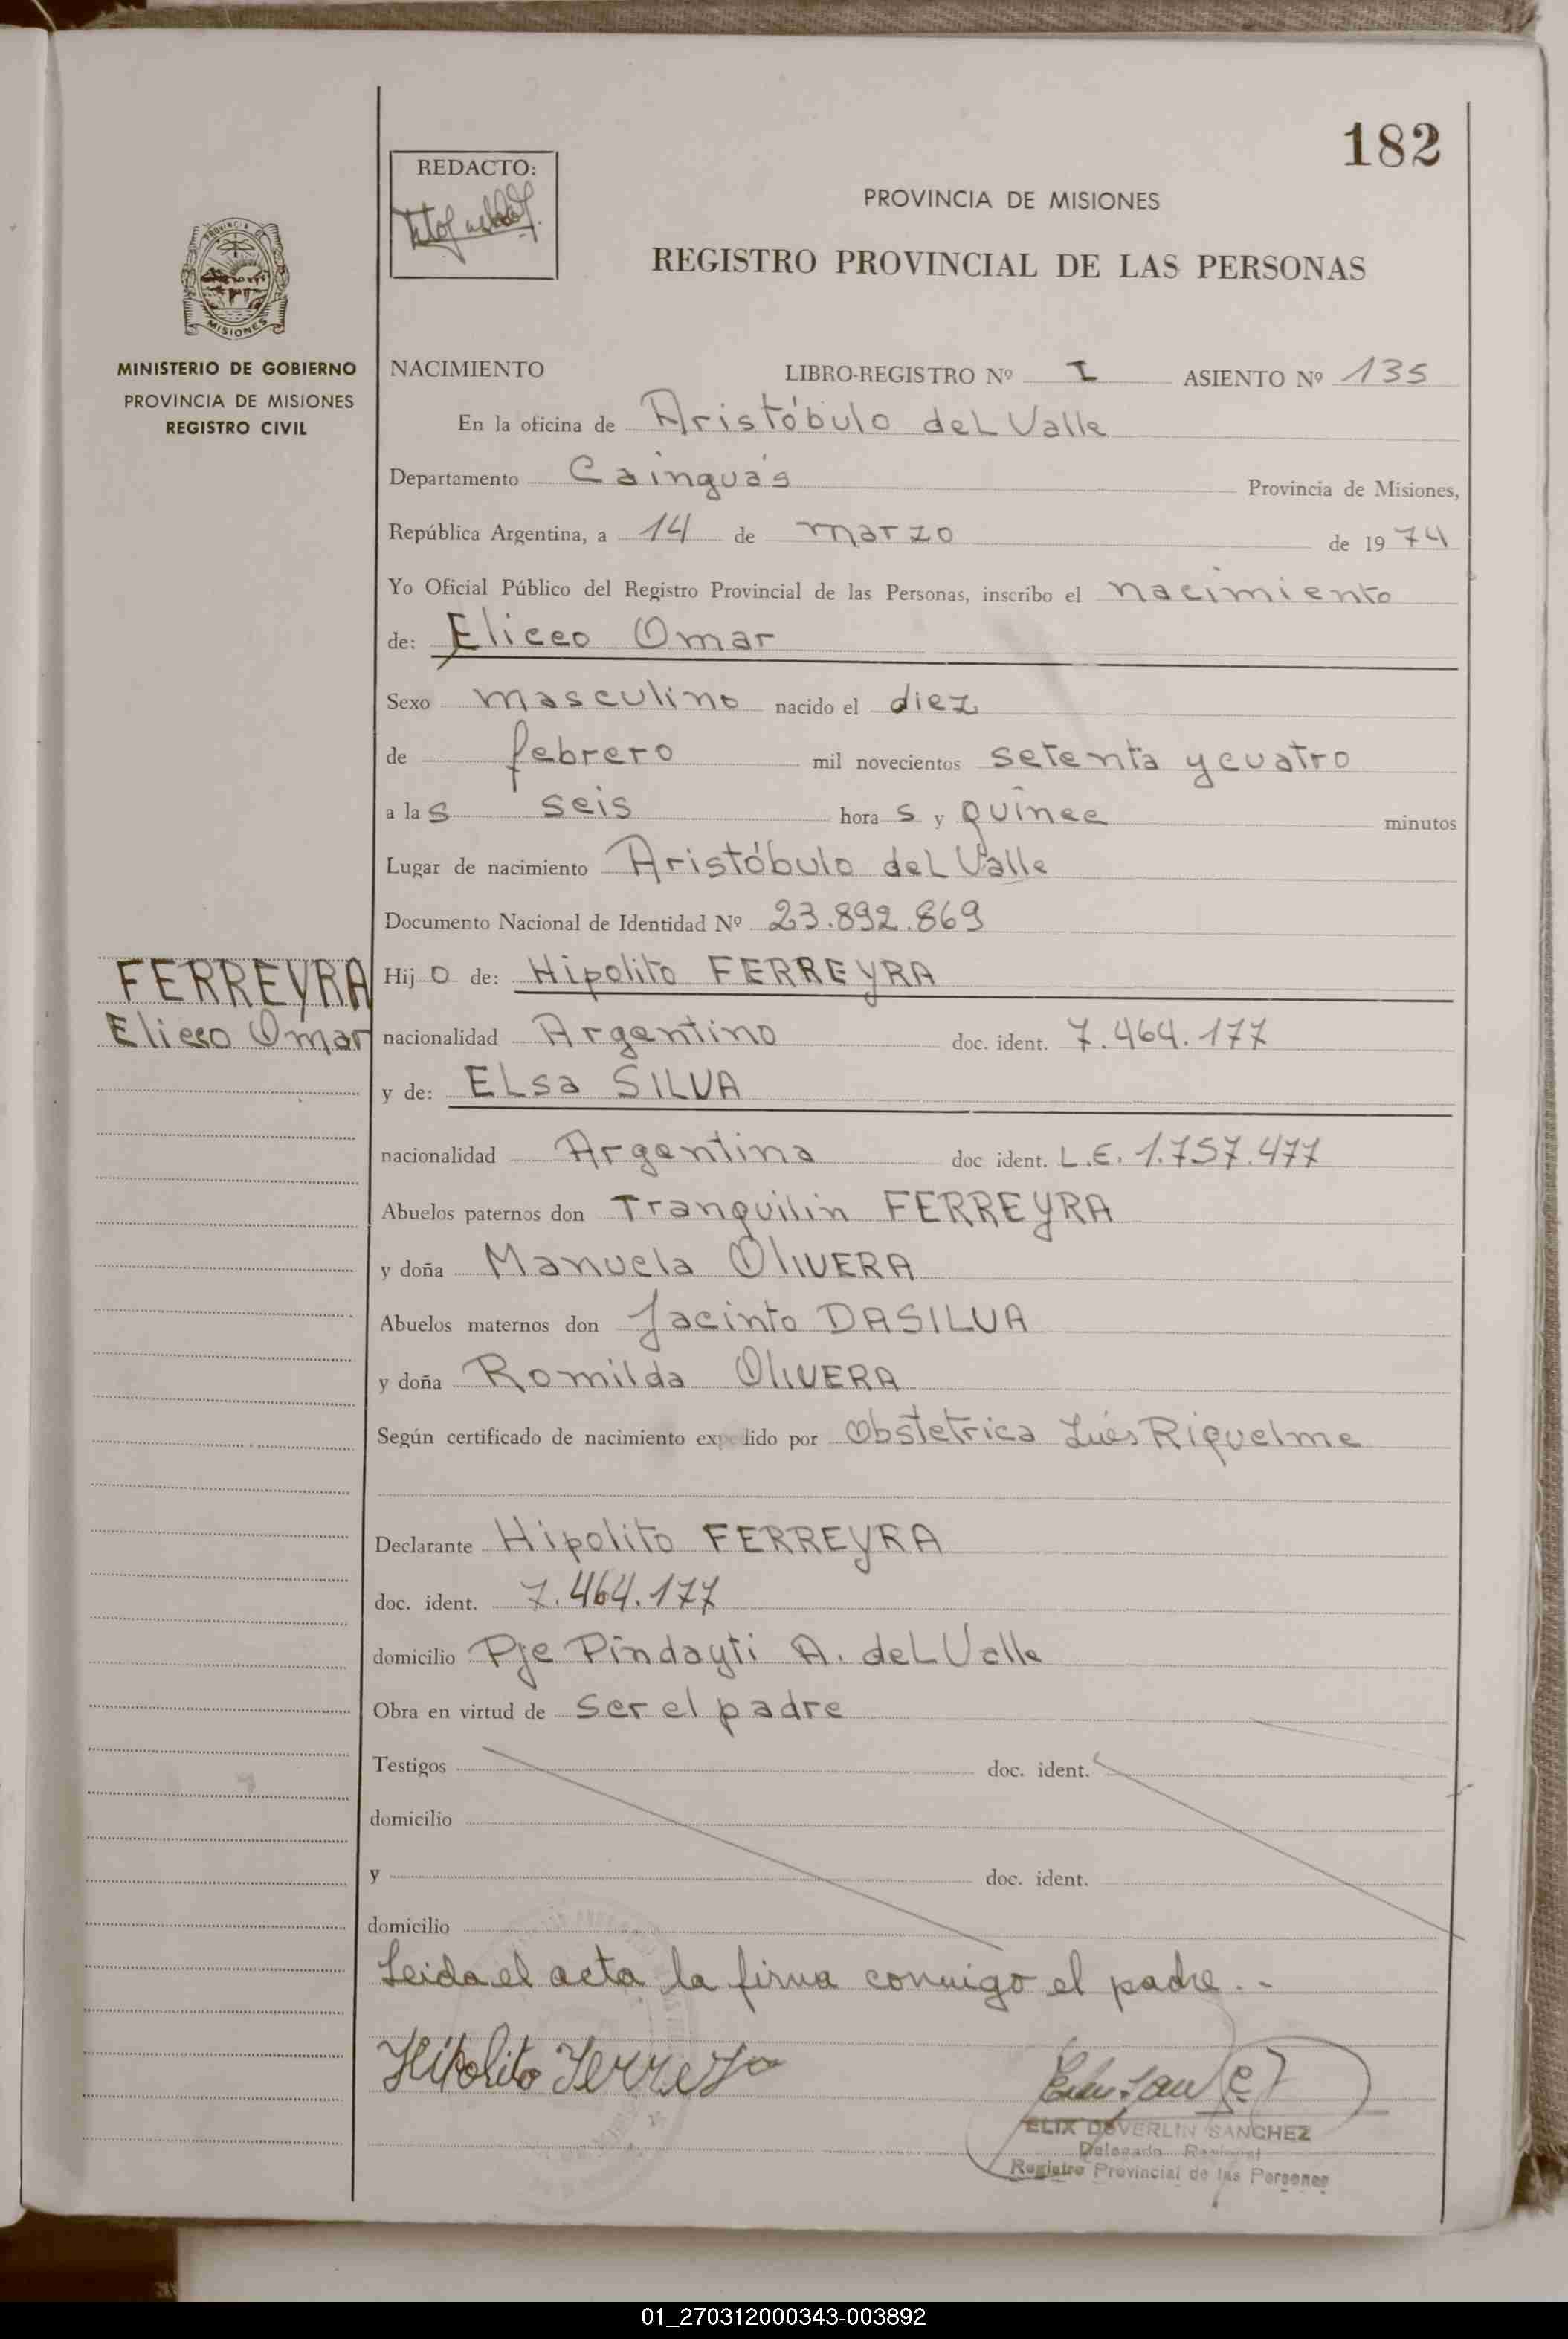 182
REDACTO:
PROVINCIA DE MISIONES
REGISTRO PROVINCIAL DE LAS PERSONAS
MISIONES
MINISTERIO DE GOBIERNO
PROVINCIA DE MISIONES
REGISTRO CIVIL
NACIMIENTO LIBRO-REGISTRO Nº I ASIENTO Nº 135
En la oficina de Aristóbulo del Valle
Departamento Cainguás Provincia de Misiones,
República Argentina, a 14 de marzo de 1974
Yo Oficial Público del Registro Provincial de las Personas, inscribo el nacimiento
de: Eliceo Omar
Sexo masculino nacido el diez
de febrero mil novecientos setenta y cuatro
a las seis horas y quince minutos
Lugar de nacimiento Aristóbulo del Valle
Documento Nacional de Identidad Nº 23.892.869
FERREYRA
Eliceo Omar
Hijo de: Hipolito FERREYRA
nacionalidad Argentino doc. ident. 7.464.177
y de: ELsa SILVA
nacionalidad Argentina doc ident. L.E. 1.757.477
Abuelos paternos don Tranquilin FERREYRA
y doña Manuela OliVERA
Abuelos maternos don Jacinto DASILVA
y doña Romilda OliVERA
Según certificado de nacimiento expedido por Obstetrica Riquelme
Declarante Hipolito FERREYRA
doc. ident. 7.464.177
domicilio Pje Pindayti A. del Valle
Obra en virtud de ser el padre
Testigos doc. ident.
domicilio
y doc. ident.
domicilio
Leida el acta la firma conmigo el padre..-
Hipolito Ferreyra
ELIX DEVERLIN SANCHEZ
Delegado Regional
Registro Provincial de las Personas
01_270312000343-003892